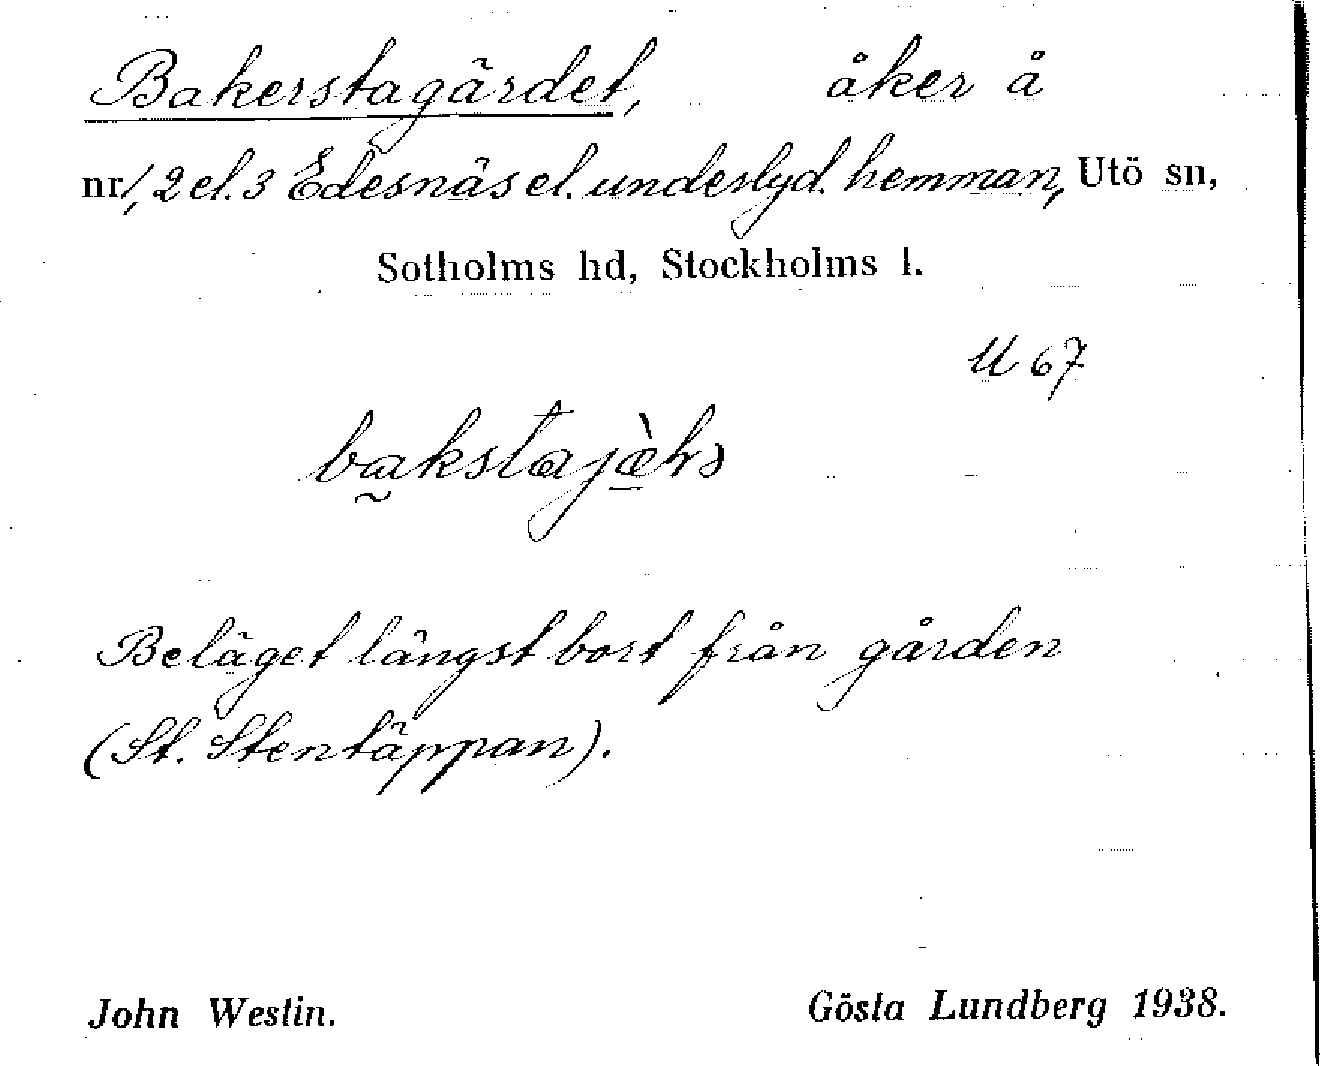 Bakerstagärdet, åker å
nr 1, 2 el. 3 Edesnäs el. underlyd. hemman, Utö sn,
Sotholms hd, Stockholms l.
U 67
Beläget längst bort från gården
(St. Stentäppan).
John Westin. Gösta Lundberg 1938.